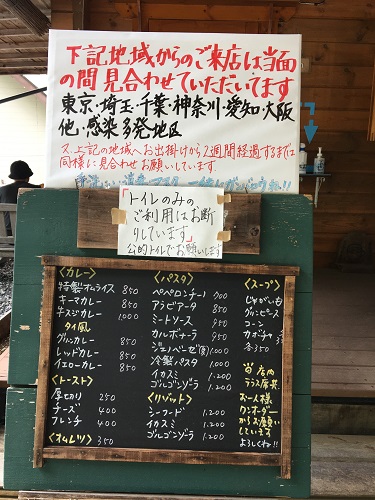 下記地域からのご来店は当面
の間見合わせていただいてます
東京・埼玉・千葉・神奈川・愛知・大阪
他・感染多発地区
又、上記の地域へお出掛けから2週間経過するまでは
同様に見合わせお願いしています.
トイレのみの
ご利用はお断
りしています。
公的トイレでお願いします
<カレー>
特製オムライス 850
キーマカレー 850
牛スジカレー 1,000
タイ風
グリーンカレー 850
レッドカレー 850
イエローカレー 850
<トースト>
厚切り 250
チーズ 400
フレンチ 400
<オムレツ> 350
<パスタ>
ペペロンチーノ 700
アラビアータ 800
ミートソース 900
カルボナーラ 900
ジェノベーゼ 1,000
冷製パスタ 1,000
イカスミ 1,200
ゴルゴンゾーラ 1,200
<リゾット>
シーフード 1,200
イカスミ 1,200
ゴルゴンゾーラ 1,200
<スープ>
じゃがいも
グリンピース
コーン
カボチャ
各350
店内
テラス席共
お一人様
ワンオーダー
からお願い
しています
よろしくね!!